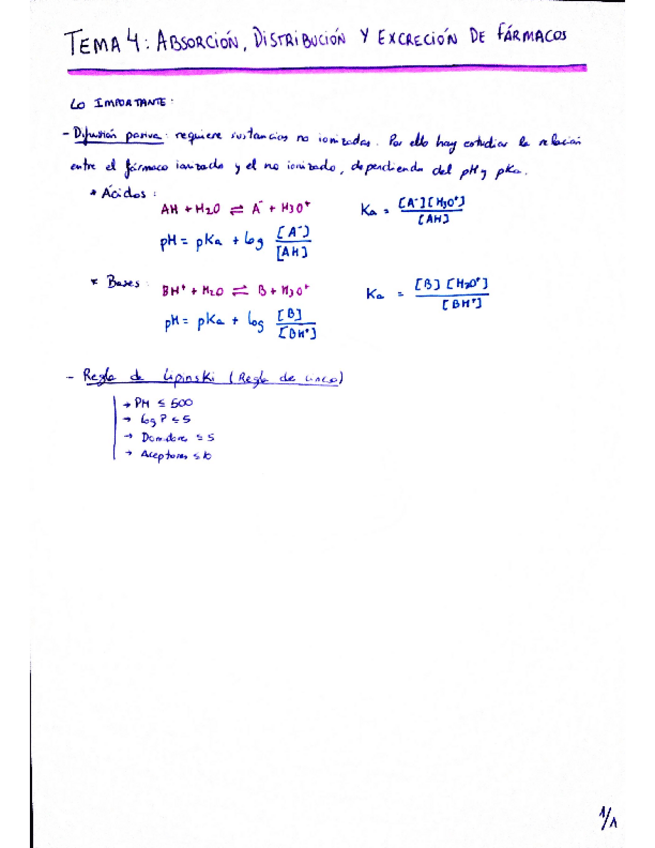 TEMA 4: ABSORCIÓN, DISTRIBUCIÓN Y EXCRECIÓN DE FÁRMACOS
LO IMPORTANTE:
- Difusión pasiva: requiere sustancias no ionizadas. Por ello hay estudiar la relación
entre el fármaco ionizado y el no ionizado, dependiendo del pH y pKa.
* Ácidos:
AH + H2O ⇌ A⁻ + H3O⁺ Ka = [A⁻][H3O⁺] / [AH]
pH = pKa + log [A⁻] / [AH]
* Bases:
BH⁺ + H2O ⇌ B + H3O⁺ Ka = [B][H3O⁺] / [BH⁺]
pH = pKa + log [B] / [BH⁺]
- Regla de Lipinski (Regla de cinco)
→ PM ≤ 500
→ log P ≤ 5
→ Donadores ≤ 5
→ Aceptores ≤ 10
1/1